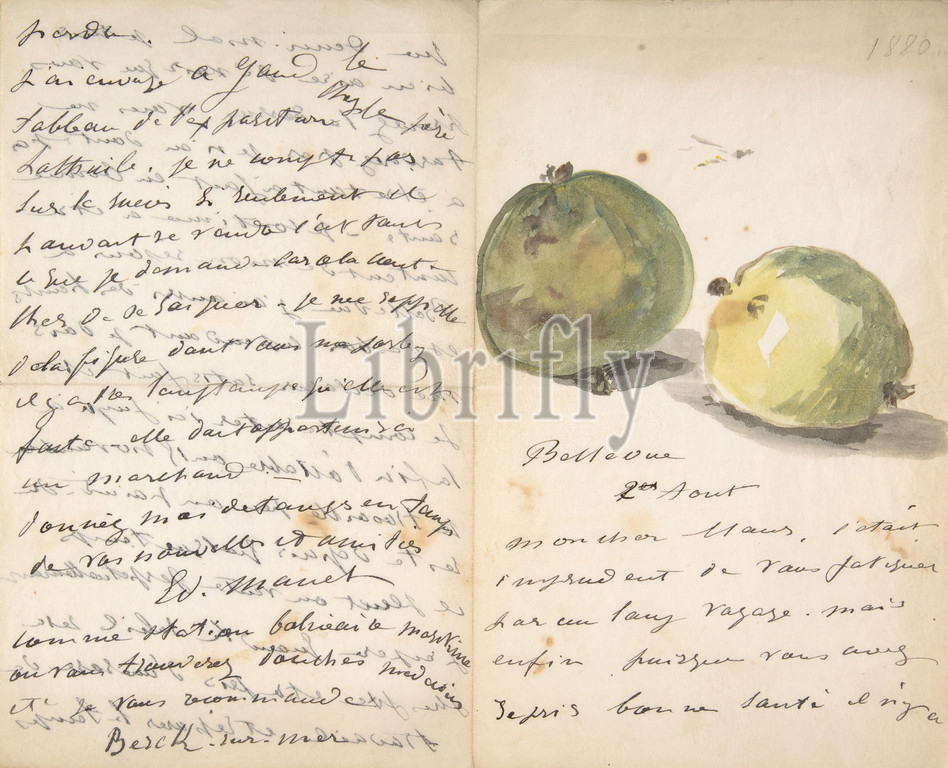 perdu.
J'ai envoyé à Gand le
tableau de l'exposition chez le père
Lathuile, je ne compte pas
sur le succès si seulement il
pouvait se vendre c'est tout
ce que je demande car cela
cher de se soigner - je me rappelle
de la figure dont vous me parlez
il y a très longtemps qu'elle est
faite elle doit appartenir à
un marchand. —
Donnez moi de temps en temps
de vos nouvelles et amitiés
Ed. Manet
comme station balnéaire maritime
où vous trouverez douches médecins
etc je vous recommande
Berck-sur-mer
1880
Bellevue
2 Aout
mon cher Maus, c'était
imprudent de vous fatiguer
par un long voyage. mais
enfin puisque vous avez
repris bonne santé il n'y a
Librifly